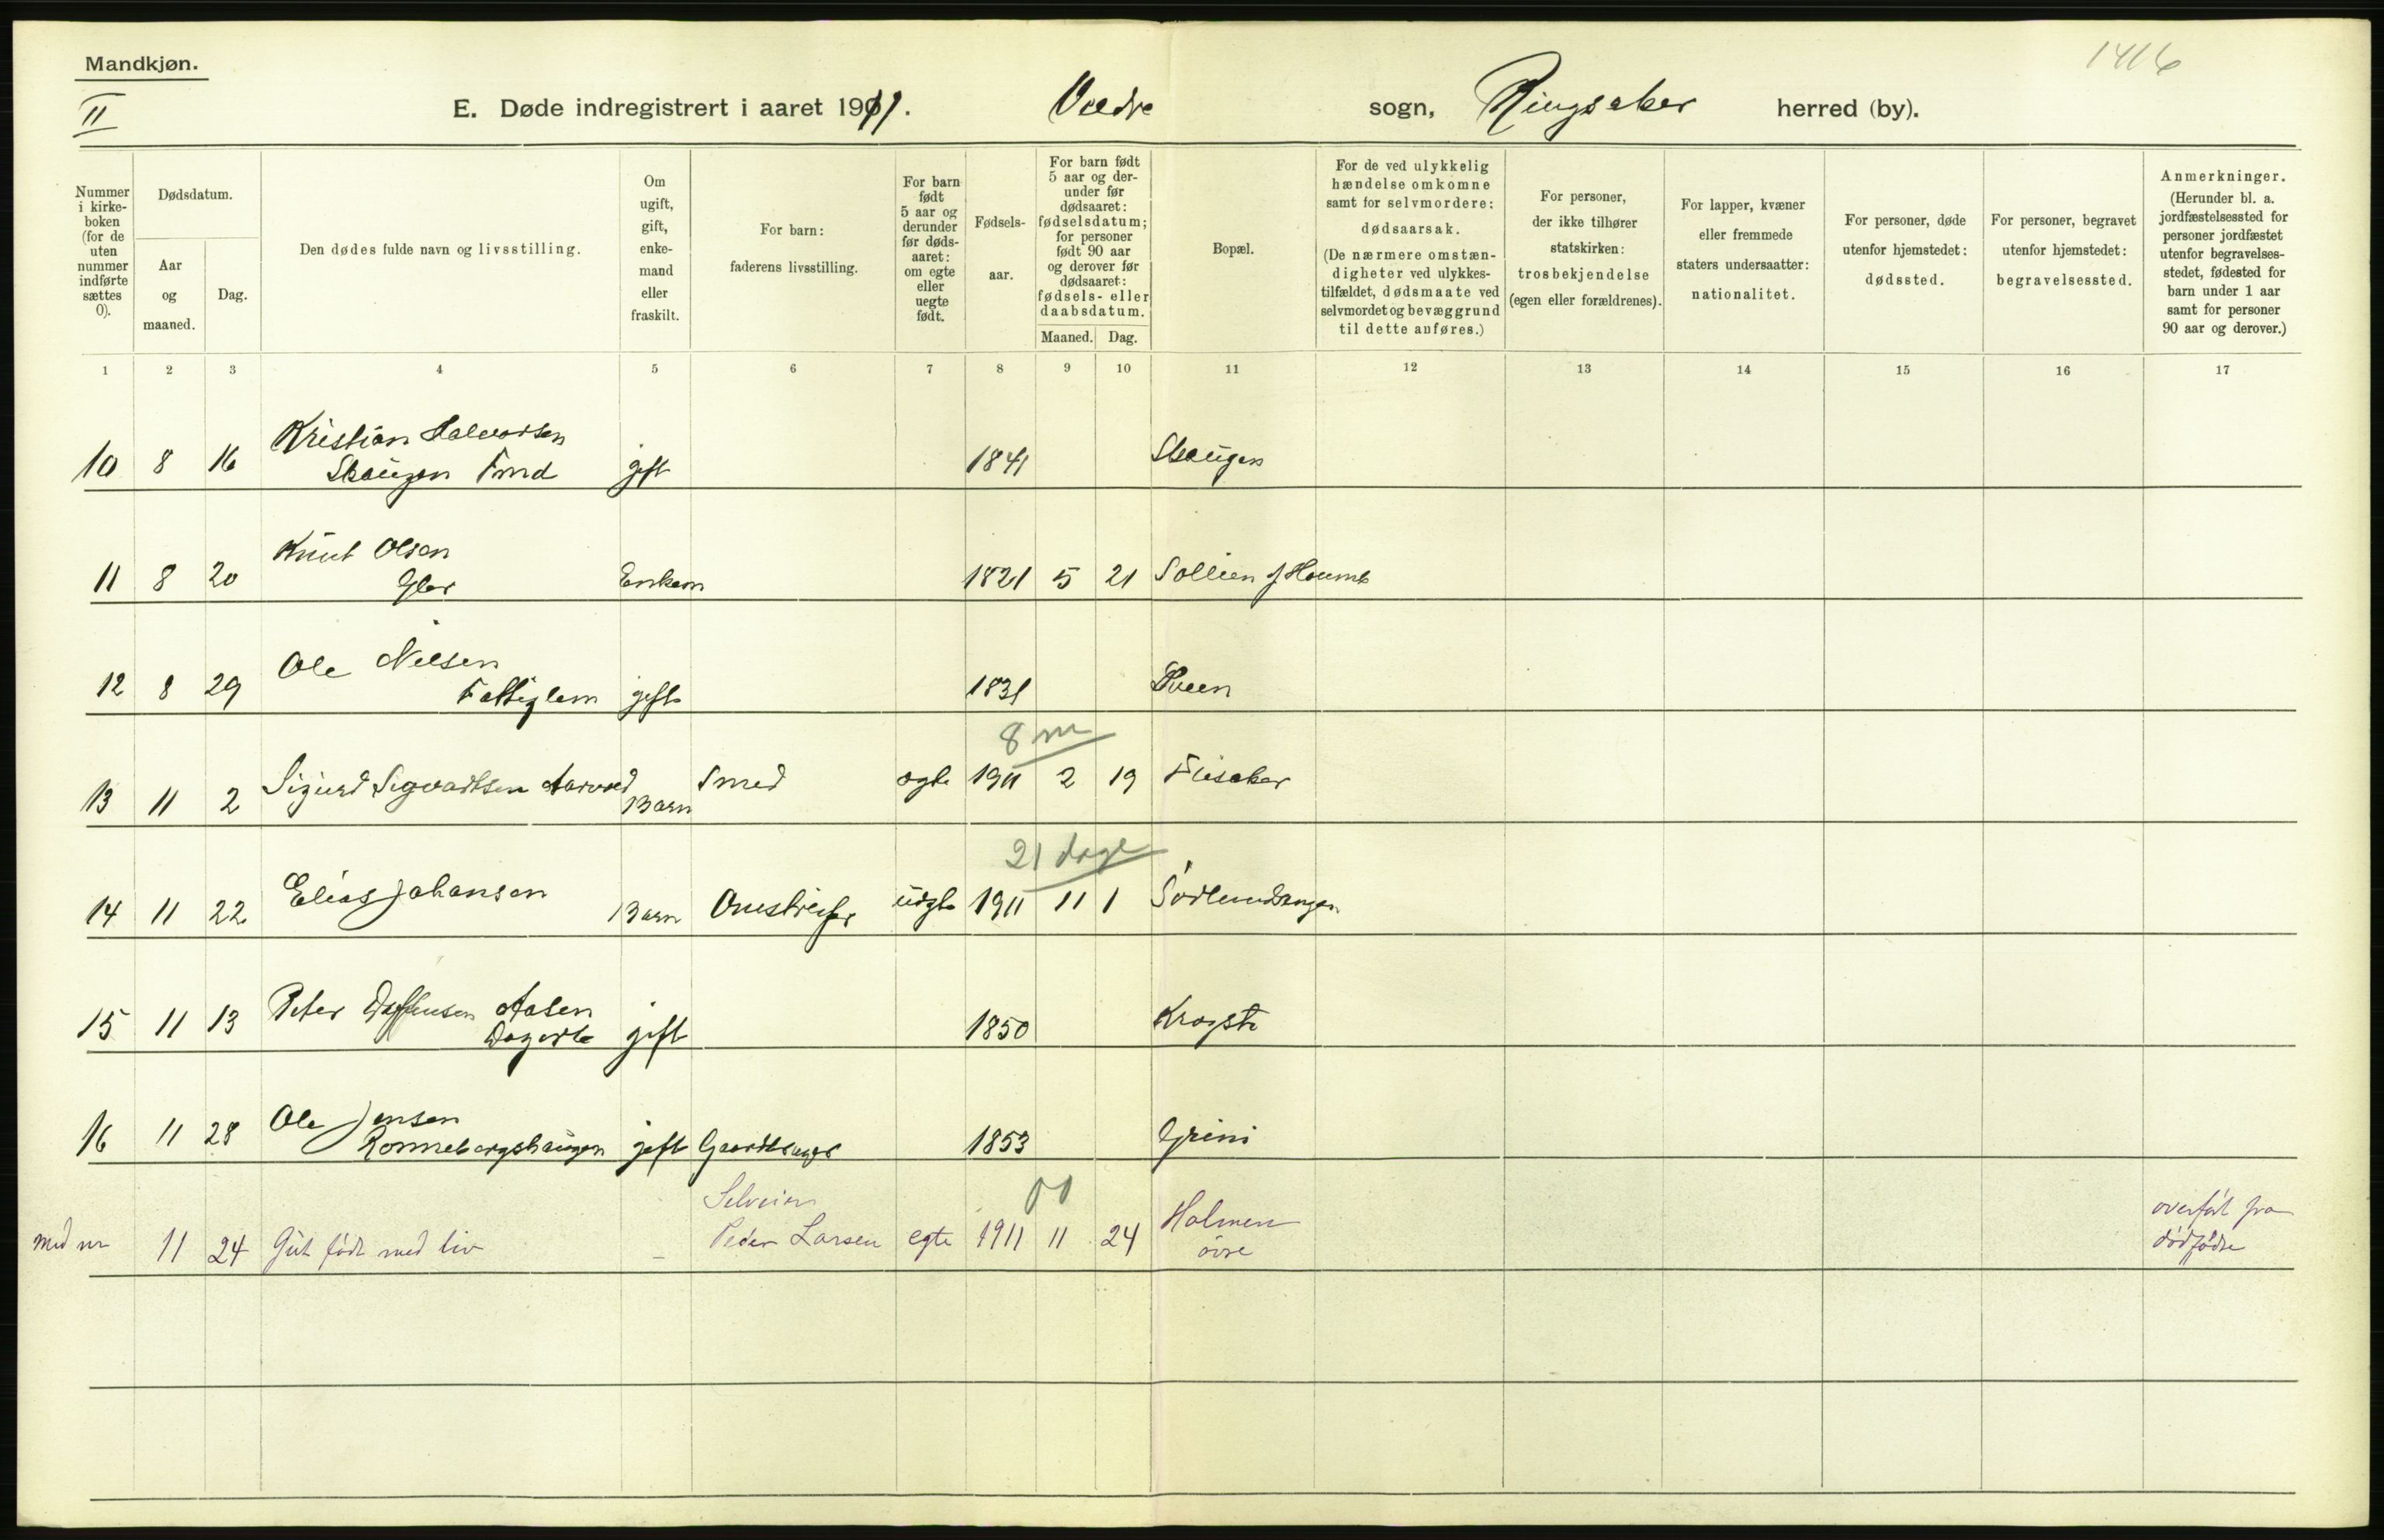 Mandkjøn.
1416
II
E. Døde indregistrert i aaret 1911. Veldre sogn, Ringsaker herred (by).
Nummer i kirke-boken (for de uten nummer indførte sættes 0).
Dødsdatum.
Aar og maaned.
Dag.
Den dødes fulde navn og livsstilling.
Om ugift, gift, enke-mand eller fraskilt.
For barn: faderens livsstilling.
For barn født 5 aar og derunder før døds-aaret: om egte eller uegte født.
Fødsels-aar.
For barn født 5 aar og der-under før dødsaaret: fødselsdatum; for personer født 90 aar og derover før dødsaaret: fødsels- eller daabsdatum.
Maaned. Dag.
Bopæl.
For de ved ulykkelig hændelse omkomne samt for selvmordere: dødsaarsak. (De nærmere omstæn-digheter ved ulykkes-tilfældet, dødsmaate ved selvmordet og bevæggrund til dette anføres.)
For personer, der ikke tilhører statskirken: trosbekjendelse (egen eller forældrenes).
For lapper, kvæner eller fremmede staters undersaatter: nationalitet.
For personer, døde utenfor hjemstedet: dødssted.
For personer, begravet utenfor hjemstedet: begravelsessted.
Anmerkninger. (Herunder bl. a. jordfæstelsessted for personer jordfæstet utenfor begravelses-stedet, fødested for barn under 1 aar samt for personer 90 aar og derover.)
1 2 3 4 5 6 7 8 9 10 11 12 13 14 15 16 17
Kristian Halvorsen
10 8 16 Skaugen gift 1841 Skaugen
Knut Olsen
11 8 20 Glor Enkem 1821 5 21 Sollien
Ole Nilsen
12 8 29 Fattiglem gift 1831 Sveen
8 m
13 11 2 Sigurd Sigvartsen Barn Smed egte 1911 2 19
21 dage
14 11 22 Elias Johansen Barn uegte 1911 11 1
Peter Aasen
15 11 13 gift 1850 Krogst
Ole Jensen
16 11 28 Ronnebergshaugen gift 1853 Grini
Selveier
00
Holmen
overført fra
11 24 Gut født med liv Peder Larsen egte 1911 11 24 øvre dødfødte